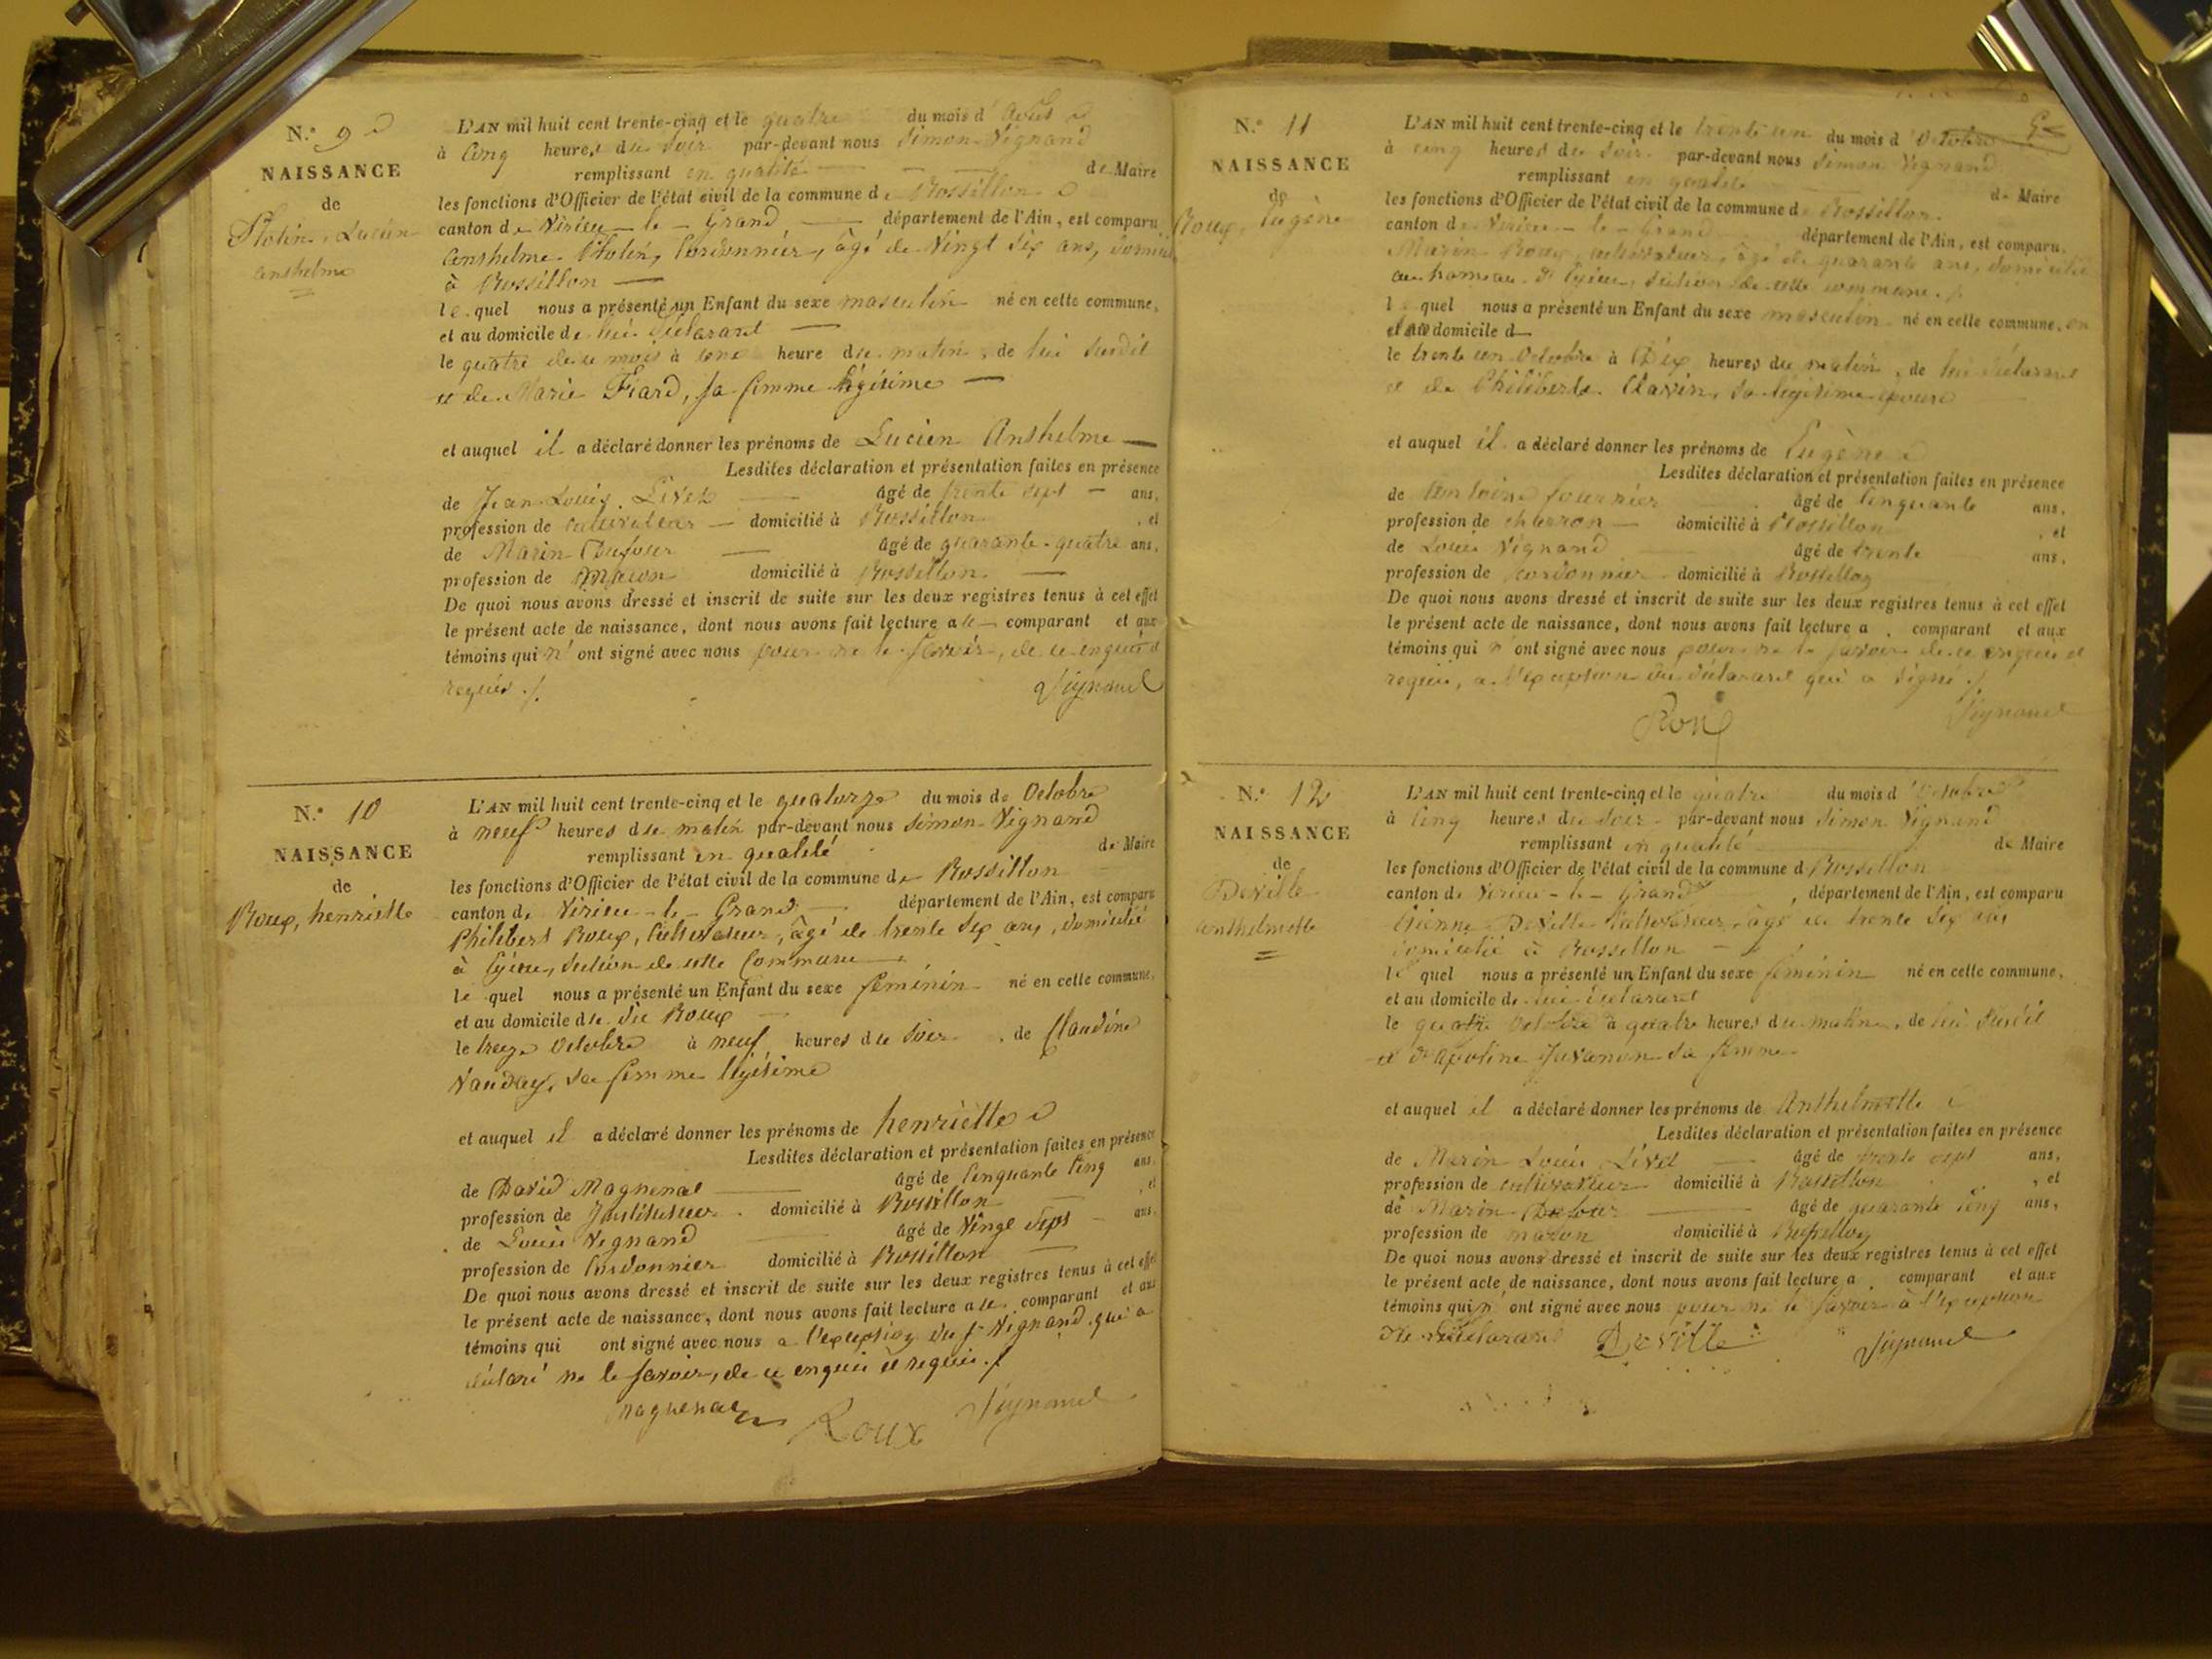 N.° 9
NAISSANCE
de
Lucien
anthelme
L'AN mil huit cent trente-cinq et le quatre du mois d'Août
à Cinq heures du soir par-devant nous Simon Vignand
remplissant en qualité de Maire
les fonctions d'Officier de l'état civil de la commune de Rossillon
canton de Virieu-le-Grand département de l'Ain, est comparu
Anthelme Cordonnier, âgé de Vingt six ans, domicilié
à Rossillon
lequel nous a présenté un Enfant du sexe masculin né en cette commune,
et au domicile de lui déclarant
le quatre de ce mois à une heure du matin, de lui susdit
et de Marie Fiard, sa femme légitime
et auquel il a déclaré donner les prénoms de Lucien Anthelme
Lesdites déclaration et présentation faites en présence
de Jean Louis Livet âgé de trente sept ans,
profession de cultivateur domicilié à Rossillon, et
de Marin Dufour âgé de quarante-quatre ans,
profession de Maçon domicilié à Rossillon
De quoi nous avons dressé et inscrit de suite sur les deux registres tenus à cet effet
le présent acte de naissance, dont nous avons fait lecture au comparant et aux
témoins qui n'ont signé avec nous pour ne le savoir, de ce enquis et
requis ./.
Vignand
N.° 10
NAISSANCE
de
Roux, henriette
L'AN mil huit cent trente-cinq et le quatorze du mois de Octobre
à neuf heures du matin par-devant nous Simon Vignand
remplissant en qualité de Maire
les fonctions d'Officier de l'état civil de la commune de Rossillon
canton de Virieu-le-Grand département de l'Ain, est comparu
Philibert Roux, Cultivateur, âgé de trente six ans, domicilié
à Eyieu, section de cette Commune
lequel nous a présenté un Enfant du sexe féminin né en cette commune,
et au domicile du dit Roux
le treize Octobre à neuf heures du soir, de Claudine
Vauday, sa femme légitime
et auquel il a déclaré donner les prénoms de henriette
Lesdites déclaration et présentation faites en présence
de David Magnenat âgé de Cinquante Cinq ans,
profession de Instituteur domicilié à Rossillon, et
de Louis Vignand âgé de Vingt Sept ans,
profession de Cordonnier domicilié à Rossillon
De quoi nous avons dressé et inscrit de suite sur les deux registres tenus à cet effet
le présent acte de naissance, dont nous avons fait lecture au comparant et aux
témoins qui ont signé avec nous a l'exception du s.r Vignand qui a
déclaré ne le savoir, de ce enquis et requis ./.
Magnenat Roux Vignand
N.° 11
NAISSANCE
de
Roux, Eugène
L'AN mil huit cent trente-cinq et le trente un du mois d'Octobre
à cinq heures du soir par-devant nous Simon Vignand
remplissant en qualité de Maire
les fonctions d'Officier de l'état civil de la commune de Rossillon
canton de Virieu-le-Grand département de l'Ain, est comparu
Marin Roux, cultivateur, âgé de quarante ans, domicilié
au hameau d'Eyieu, section de cette commune ./.
lequel nous a présenté un Enfant du sexe masculin né en cette commune, en
et au domicile d
le trente un Octobre à Dix heures du matin, de lui déclarant
et de Philiberte Clavin, sa légitime épouse
et auquel il a déclaré donner les prénoms de Eugène
Lesdites déclaration et présentation faites en présence
de Antoine fournier âgé de Cinquante ans,
profession de charron domicilié à Rossillon, et
de Louis Vignand âgé de trente ans,
profession de cordonnier domicilié à Rossillon
De quoi nous avons dressé et inscrit de suite sur les deux registres tenus à cet effet
le présent acte de naissance, dont nous avons fait lecture a comparant et aux
témoins qui n'ont signé avec nous pour ne le savoir de ce enquis et
requis, a l'exception du déclarant qui a signé ./.
Roux Vignand
N.° 12
NAISSANCE
de
Deville
Anthelmette
L'AN mil huit cent trente-cinq et le quatre du mois d'Octobre
à Cinq heures du soir par-devant nous Simon Vignand
remplissant en qualité de Maire
les fonctions d'Officier de l'état civil de la commune d Rossillon
canton de Virieu-le-Grand, département de l'Ain, est comparu
Etienne Deville Cultivateur, âgé de trente six ans
domicilié à Rossillon
lequel nous a présenté un Enfant du sexe féminin né en cette commune,
et au domicile de lui déclarant
le quatre Octobre à quatre heures du matin, de lui susdit
et d'apoline Juvanon sa femme
et auquel il a déclaré donner les prénoms de Anthelmette
Lesdites déclaration et présentation faites en présence
de Marin Louis Livet âgé de trente sept ans,
profession de cultivateur domicilié à Rossillon, et
de Marin Dufour âgé de quarante cinq ans,
profession de maçon domicilié à Rossillon
De quoi nous avons dressé et inscrit de suite sur les deux registres tenus à cet effet
le présent acte de naissance, dont nous avons fait lecture a comparant et aux
témoins qui n'ont signé avec nous pour ne le savoir à l'exception
du déclarant Deville Vignand